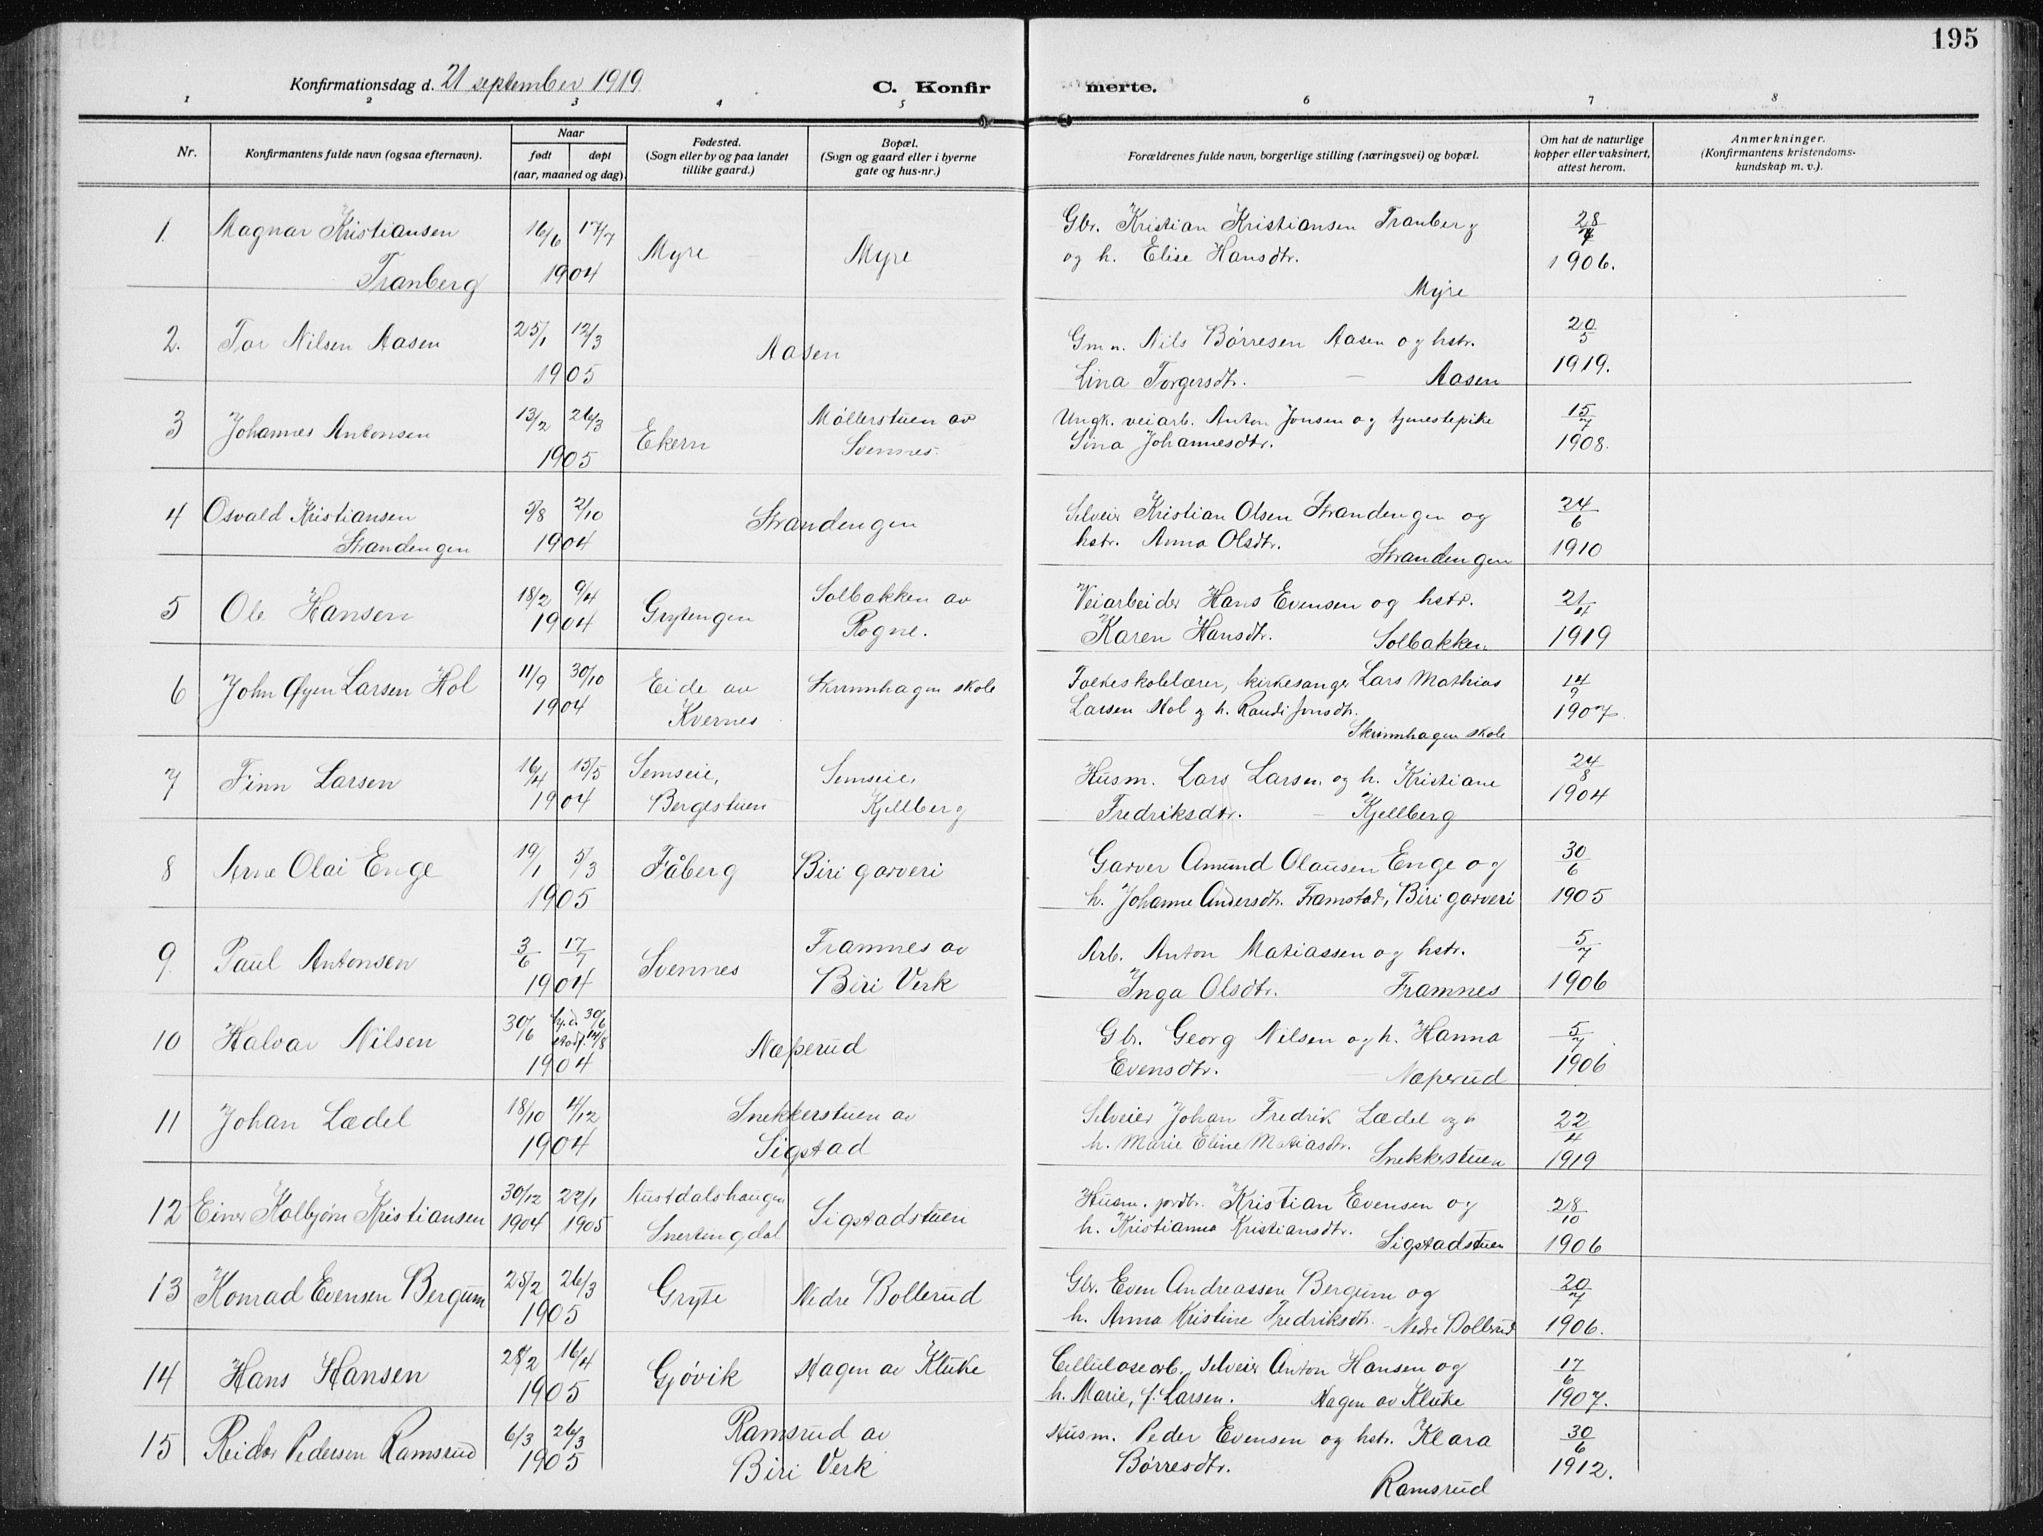 195
Konfirmationsdag d. 21 september 1919.
C. Konfirmerte.
1 2 3 4 5 6 7 8
Nr.
Konfirmantens fulde navn (ogsaa efternavn).
Naar
født døpt
(aar, maaned og dag).
Fødested.
(Sogn eller by og paa landet
tillike gaard.)
Bopæl.
(Sogn og gaard eller i byerne
gate og hus-nr.)
Forældrenes fulde navn, borgerlige stilling (næringsvei) og bopæl.
Om hat de naturlige
kopper eller vaksinert,
attest herom.
Anmerkninger.
(Konfirmantens kristendoms-
kundskap m. v.).
1. Magnar Kristiansen 16/6 17/7 Myre — Myre Gbr. Kristian Kristiansen Tranberg 28/7
Tranberg 1904 og h. Elise Hansdtr. 1906.
Myre
2. Tor Nilsen Aasen 25/1 12/3 Aasen Gmn. Nils Børresen Aasen og hstr. 20/5
1905 Lina Torgersdtr. — Aasen 1919.
3 Johannes Antonsen 13/2 26/3 Ekern Møllerstuen av Ungk. veiarb. Anton Jonsen og tjenestepike 15/7
1905 Svennes. Sina Johannesdtr. 1908.
4 Osvald Kristiansen 5/8 2/10 Strandengen Selveier Kristian Olsen Strandengen og 24/6
Strandengen 1904 hstr. Anna Olsdtr. Strandengen 1910
5 Ole Hansen 18/2 9/4 Grytengen Solbakken av Veiarbeider Hans Evensen og hstr. 21/4
1904 Rogne. Karen Hansdtr. Solbakken 1919
6 John Øyen Larsen Hol 11/9 30/10 Eide av Skrinnhagen skole Folkeskolelærer, kirkesanger Lars Mathias 14/9
1904 Kvernes Larsen Hol og h. Randi Jonsdtr. 1907.
Skrinnhagen skole
7 Finn Larsen 16/4 15/5 Semseie, Semseie, Husm. Lars Larsen og h. Kristiane 24/8
1904 Bergestuen Kjellberg Fredriksdtr. — Kjellberg 1904
8 Arne Olai Enge 19/1 5/3 Fåberg Biri garveri Garver Amund Olausen Enge og 30/6
1905 h. Johanne Andersdtr. Framstad, Biri garveri 1905
9. Paul Antonsen 3/6 17/7 Svennes Framnes av Arb. Anton Matiassen og hstr. 5/7
1904 Biri Verk Inga Olsdtr. Framnes 1906
10 Halvar Nilsen 30/6 hj.d. 30/6 Næperud Gbr. Georg Nilsen og h. Hanna 5/7
stadf. 14/8
1904 Evensdtr. — Næperud 1906
11 Johan Lædel 18/10 4/12 Snekkerstuen av Selveier Johan Fredrik Lædel og 22/4
1904 Sigstad h. Marie Eline Matiasdtr. Snekkerstuen 1919
12 Einar Kolbjørn Kristiansen 30/12 22/1 Austdalshaugen Sigstadstuen Husm. jordbr. Kristian Evensen og 28/10
1904 1905 Snertingdal h. Kristianna Kristiansdtr. Sigstadstuen 1906
13 Konrad Evensen Bergum 25/2 26/3 Gryte Nedre Bollerud Gbr. Even Andreassen Bergum og 20/7
1905 h. Anna Kristine Fredriksdtr. - Nedre Bollerud 1906.
14 Hans Hansen 28/2 16/4 Gjøvik Hagen av Kluke Cellulosearb., selveier Anton Hansen og 17/6
1905 h. Marie, f. Larsen. Hagen av Kluke 1907.
15 Reidar Pedersen Ramsrud 6/3 26/3 Ramsrud av Husm. Peder Evensen og hstr. Klara 30/6
1905 Biri Verk Børresdtr. 1912.
Ramsrud